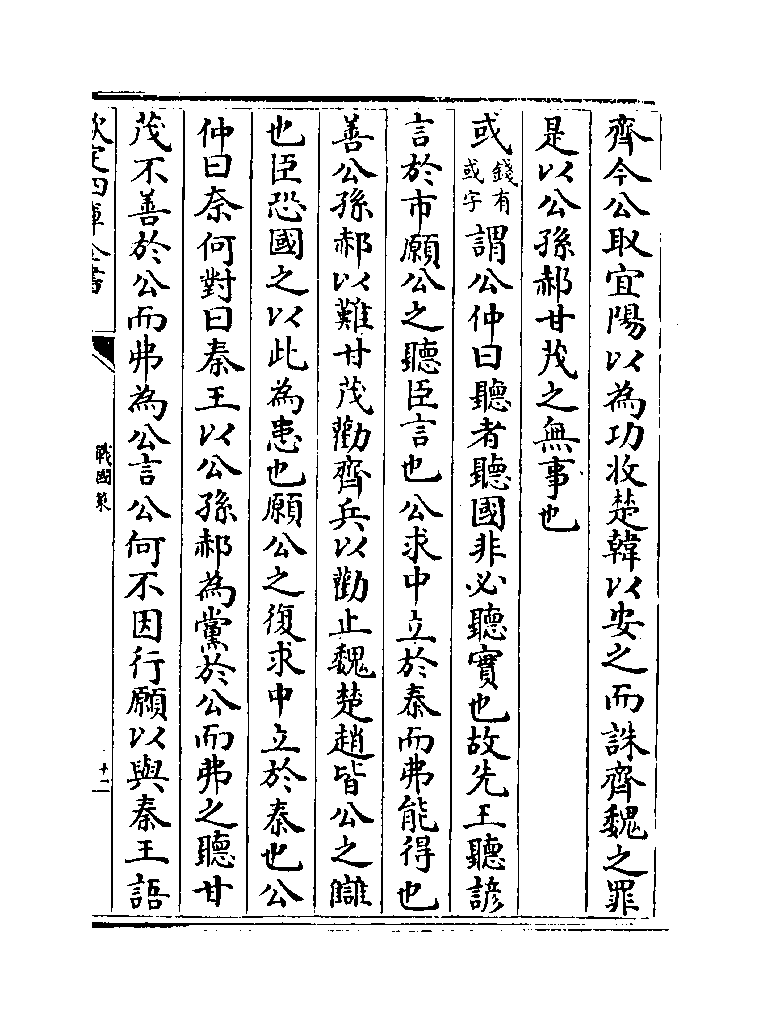 齊今公取宜陽以為功收楚韓以安之而誅齊魏之罪
是以公孫郝甘茂之無事也
或錢有或字謂公仲曰聽者聽國非必聽實也故先王聽諺
言於市願公之聽臣言也公求中立於秦而弗能得也
善公孫郝以難甘茂勸齊兵以勸止魏楚趙皆公之讎
也臣恐國之以此為患也願公之復求中立於秦也公
仲曰奈何對曰秦王以公孫郝為黨於公而弗之聽甘
茂不善於公而弗為公言公何不因行願以與秦王語
欽定四庫全書
戰國策
十二